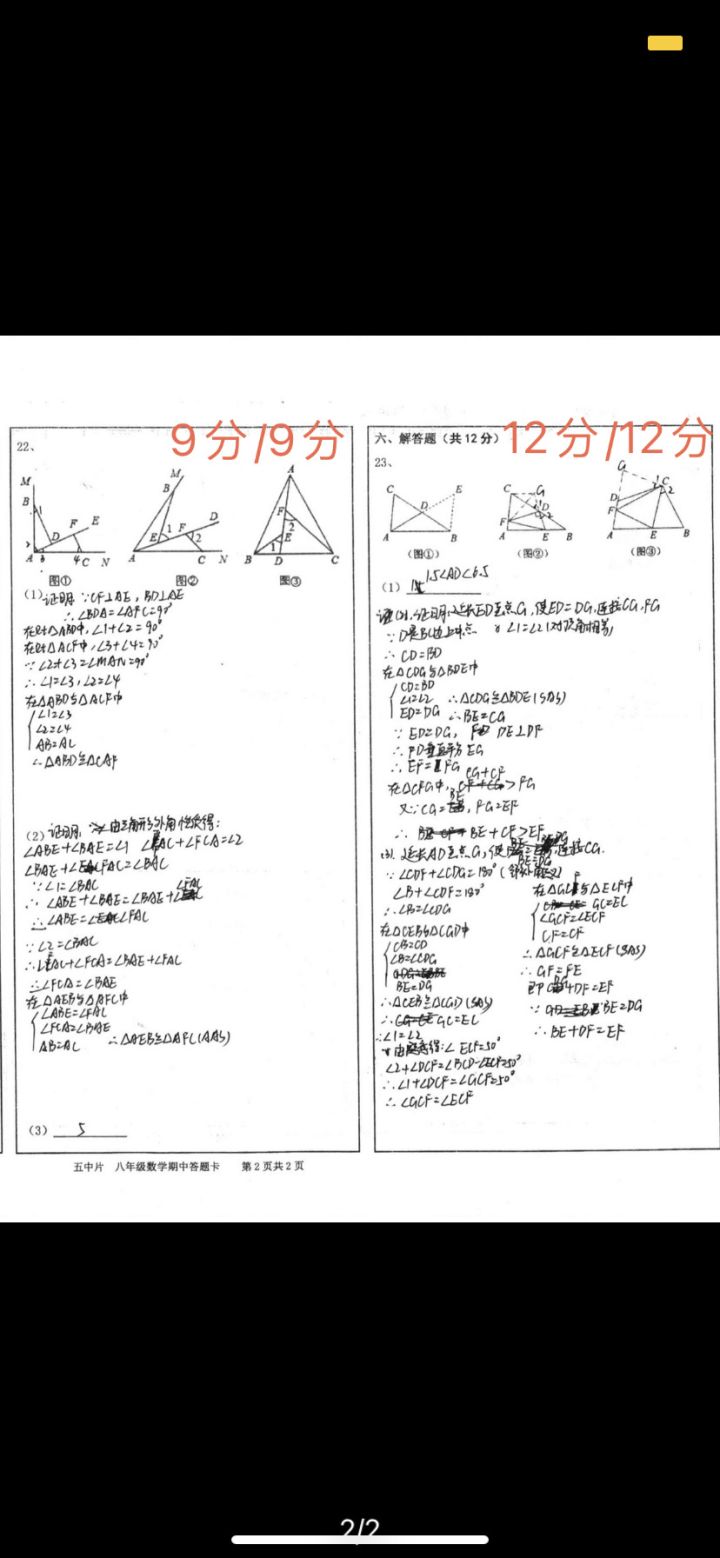 22、
9分/9分
M
B
1
D
F
E
A
3
4
C
N
图①
M
B
D
E
1
F
2
A
C
N
图②
A
F
2
1
E
B
D
C
图③
(1) 证明: ∵CF⊥AE, BD⊥AE
∴∠BDA=∠AFC=90°
在Rt△ABD中,∠1+∠2=90°
在Rt△ACF中,∠3+∠4=90°
∵∠2+∠3=∠MAN=90°
∴∠1=∠3,∠2=∠4
在△ABD与△ACF中
∠1=∠3
∠2=∠4
AB=AC
∴△ABD≌△CAF
(2) 证明: 由三角形外角性质得:
∠ABE+∠BAE=∠1 ∠FAC+∠FCA=∠2
∠BAE+∠FAC=∠BAC
∵∠1=∠BAC
∴∠ABE+∠BAE=∠BAE+∠FAC
∴∠ABE=∠FAC
∵∠2=∠BAC
∴∠FAC+∠FCA=∠BAE+∠FAC
∴∠FCA=∠BAE
在△AEB与△AFC中
∠ABE=∠FAC
∠FCA=∠BAE
AB=AC ∴△AEB≌△AFC(AAS)
(3) 5
六、解答题(共12分)
12分/12分
23、
C
E
D
A
B
(图①)
C
G
D
1
2
F
A
E
B
(图②)
G
C
1
2
D
F
A
E
B
(图③)
(1) 1.5<AD<6.5
(2).证明:延长ED至点G,使ED=DG,连接CG,FG
∵D是BC边上中点 ∠1=∠2(对顶角相等)
∴CD=BD
在△CDG与△BDE中
CD=BD
∠1=∠2 ∴△CDG≌△BDE(SAS)
ED=DG ∴BE=CG
∵ED=DG, DE⊥DF
∴FD垂直平分EG
∴EF=FG
在△CFG中,CG+CF>FG
又∵CG=BE,FG=EF
∴BE+CF>EF
(3).延长AD至点G,使BE=DG,连接CG.
∵∠CDF+∠CDG=180°
∠B+∠CDF=180°
∴∠B=∠CDG
在△CEB与△CGD中
CB=CD
∠B=∠CDG
BE=DG
∴△CEB≌△CGD(SAS)
∴GC=EC
∴∠1=∠2
由题意得:∠ECF=50°
∠2+∠DCF=∠BCD-∠ECF=50°
∴∠1+∠DCF=∠GCF=50°
∴∠GCF=∠ECF
在△GCF与△ECF中
GC=EC
∠GCF=∠ECF
CF=CF
∴△GCF≌△ECF(SAS)
∴GF=FE
即DG+DF=EF
∵BE=DG
∴BE+DF=EF
五中片 八年级数学期中答题卡 第2页共2页
2/2